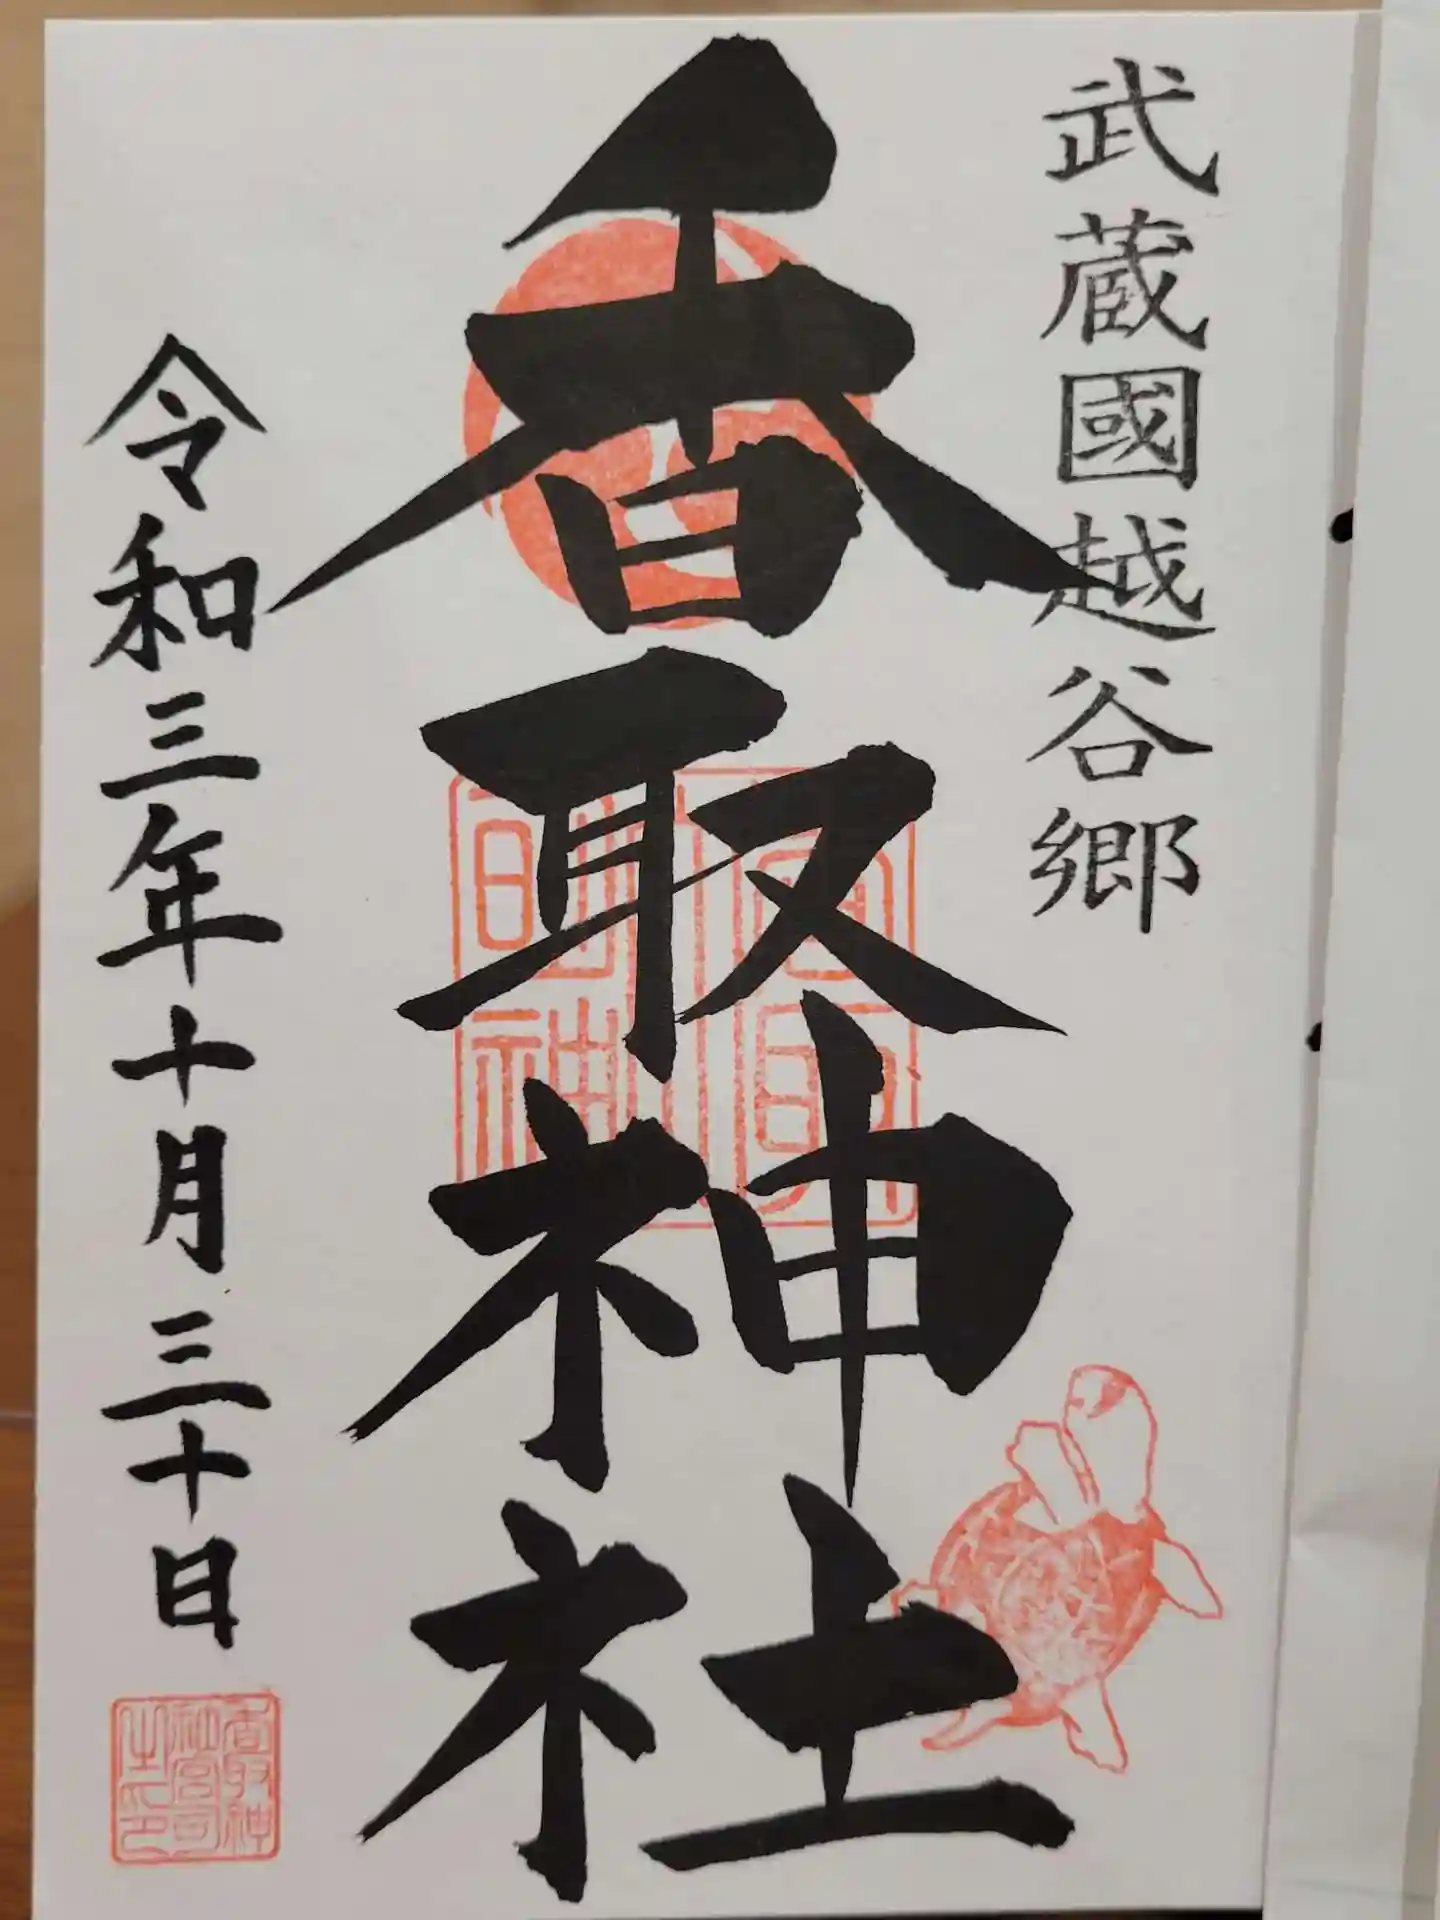 武蔵國越谷郷
香取神社
令和三年十月三十日
香取神
社宮司
之印